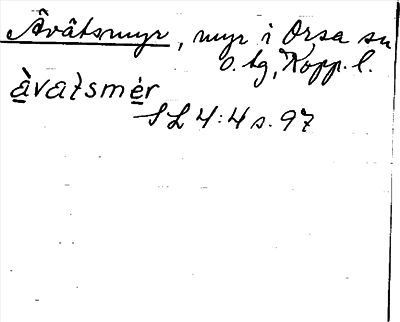 Åvåtsmyr, myr i Orsa sn
o. tg, Kopp. l.
àvatsmér
SL 4:4 s. 97